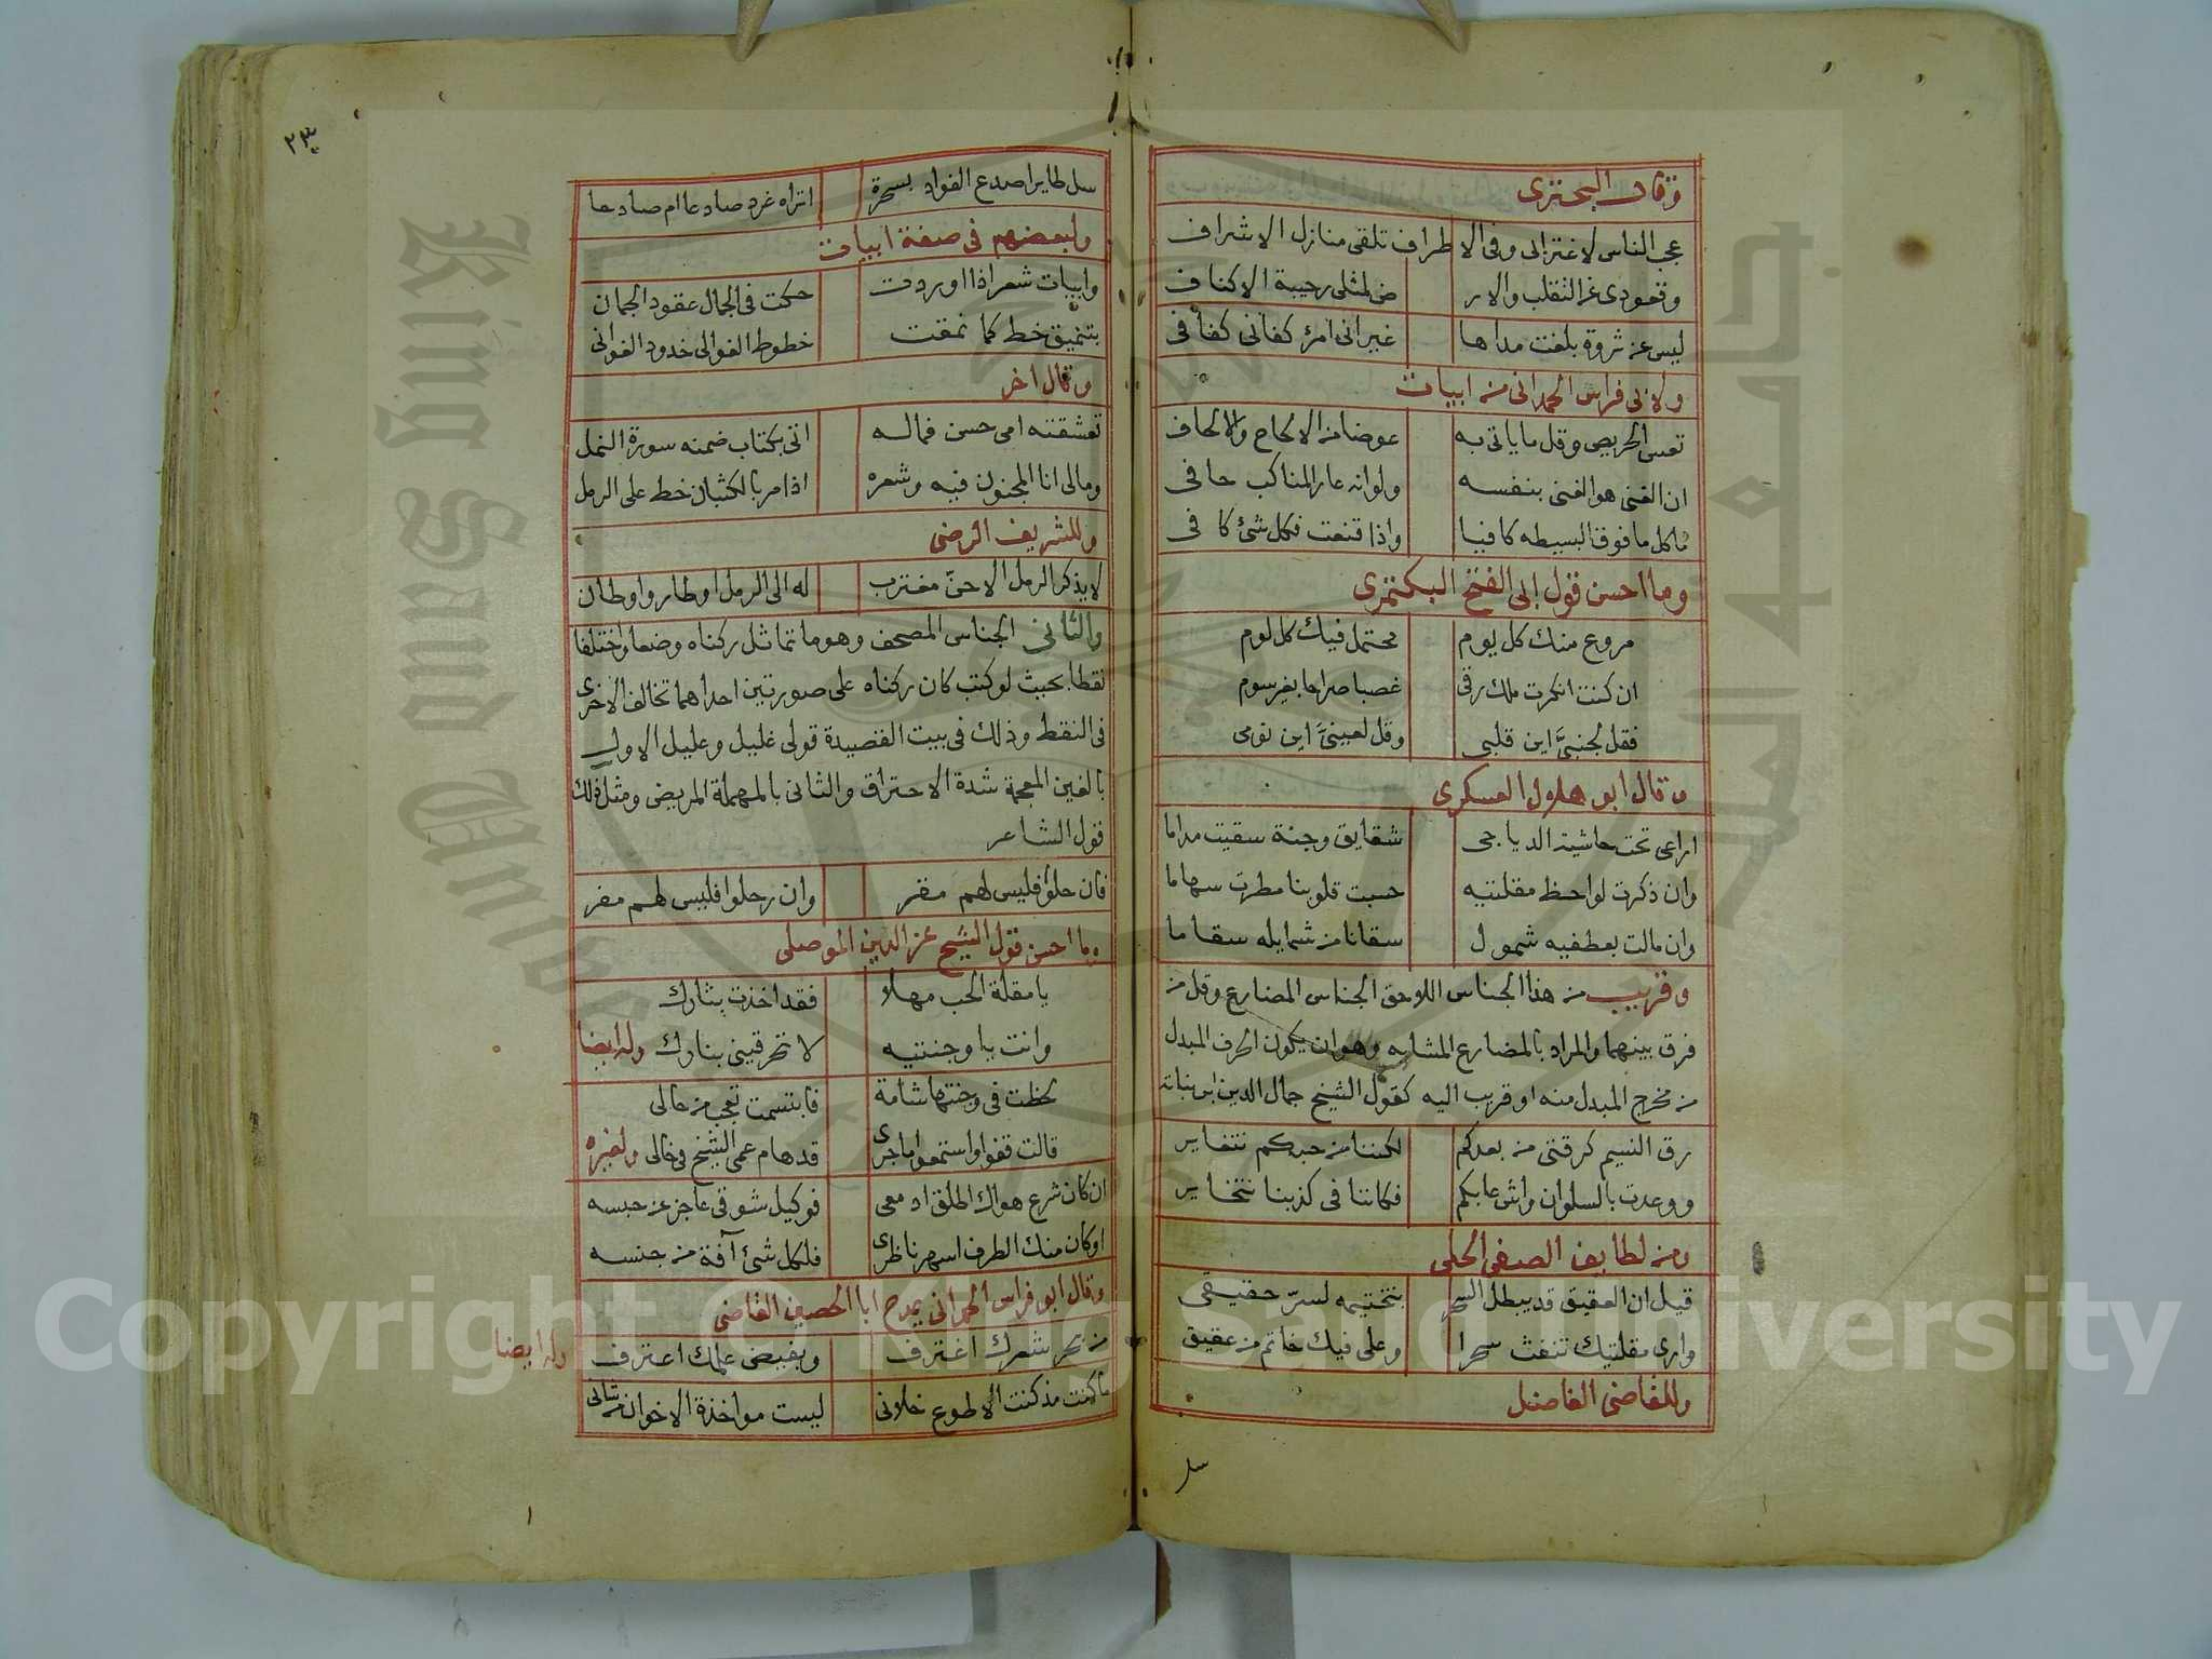 وقال البحترى
عجب الناس لاغترابى وفى الاطراف تلقى منازل الاشراف
وقعودى عن التقلب والار ض لمثلى رحيبة الاكناف
ليس عن ثروة بلغت مداها غير انى امرؤ كفانى كفافى
ولابى فراس الحمدانى من ابيات
تعس الحريص وقل ما ياتى به عوضا من الالحاح والالحاف
ان الغنى هو الغنى بنفسه ولو انه عار المناكب حافى
ما كل ما فوق البسيطه كافيا واذا قنعت فكل شئ كافى
وما احسن قول ابى الفتح البكتمرى
مروع منك كل يوم محتمل فيك كل لوم
ان كنت انكرت ملك رقى غصبا صراحا بغير سوم
فقل لجنبىَّ اين قلبى وقل لعينىَّ اين نومى
وقال ابو هلال العسكرى
اراعى تحت حاشية الدياجى شقايق وجنة سقيت مداما
وان ذكرت لواحظ مقلتيه حسبت قلوبنا مطرت سهاما
وان مالت بعطفيه شمول سقانا من شمايله سقاما
وقريب من هذا الجناس اللاحق الجناس المضارع وقل من
فرق بينهما والمراد بالمضارع المشابه وهو ان يكون الحرف المبدل
من مخرج المبدل منه او قريب اليه كقول الشيخ جمال الدين ابن نباته
رق النسيم كرقتى من بعدكم لكننا من حبكم نتغاير
ووعدت بالسلوان واش عابكم فكاننا فى كذبنا نتخاير
ومن لطايف الصفى الحلى
قيل ان العقيق قد يبطل السحر بتختيمه لسرّ حقيقى
وارى مقلتيك تنفث سحرا وعلى فيك خاتم من عقيق
وللقاضى الفاضل
سل
٢٣
سل طايرا صدع الفواد بسحرة اتراه غرد صادعا ام صادحا
ولبعضهم فى صفة ابيات
وابيات شعر اذا اوردت حكت فى الجمال عقود الجمان
بتنميق خط كما نمقت خطوط الغوالى خدود الغوانى
وقال اخر
تعشقته امى حسن فماله اتى بكتاب ضمنه سورة النمل
ومالى انا المجنون فيه وشعره اذا مر بالكثبان خط على الرمل
وللشريف الرضى
لا يذكر الرمل الا حنّ مغترب له الى الرمل اوطار واوطان
والثانى الجناس المصحف وهو ما تماثل ركناه وضعا واختلفا
نقطا بحيث لو كتب كان ركناه على صورتين احداهما تخالف الاخرى
فى النقط وذلك فى بيت القصيدة قولى غليل وعليل الاول
بالغين المعجمة شدة الاحتراق والثانى بالمهملة المريض ومثل ذلك
قول الشاعر
فان حلوا فليس لهم مقر وان رحلوا فليس لهم مفر
وما احسن قول الشيخ عز الدين الموصلى
يا مقلة الحب مهلا فقد اخذت بثارك
وانت يا وجنتيه لا تحرقينى بنارك وله ايضا
لحظت فى وجنتها شامة فابتسمت تعجب من حالى
قالت قفوا واستمعوا ما جرى قد هام عمى الشيخ فى خالى ولغيره
ان كان شرع هواك اطلق ادمعى فوكيل شوقى عاجز عن حبسه
او كان منك الطرف اسهر ناظرى فلكل شئ آفة من جنسه
وقال ابو فراس الحمدانى يمدح ابا الحصين القاضى
من بحر شعرك اغترف وبفيض علمك اعترف وله ايضا
ما كنت مذ كنت الا طوع خلانى ليست مواخذة الاخوان من شانى
Copyright © King Saud University
King Saud University